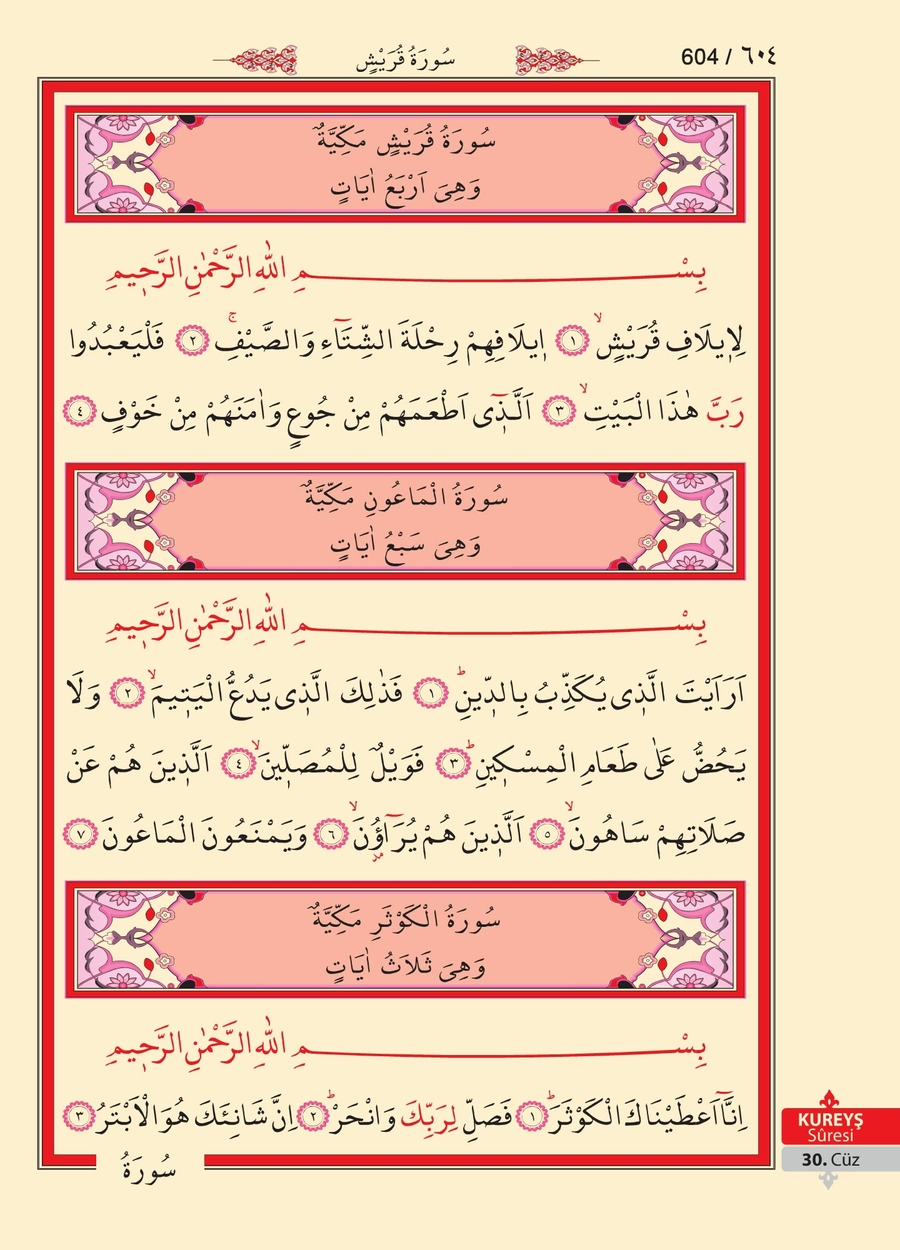 سُورَةُ قُرَيْشٍ
604 / ٦٠٤
سُورَةُ قُرَيْشٍ مَكِّيَّةٌ
وَهِىَ اَرْبَعُ اٰيَاتٍ
بِسْمِ اللّٰهِ الرَّحْمٰنِ الرَّحٖيمِ
لِاٖيلَافِ قُرَيْشٍۙ ﴿١﴾ اٖيلَافِهِمْ رِحْلَةَ الشِّتَٓاءِ وَالصَّيْفِۚ ﴿٢﴾ فَلْيَعْبُدُوا
رَبَّ هٰذَا الْبَيْتِۙ ﴿٣﴾ اَلَّذٖٓى اَطْعَمَهُمْ مِنْ جُوعٍ وَاٰمَنَهُمْ مِنْ خَوْفٍ ﴿٤﴾
سُورَةُ الْمَاعُونِ مَكِّيَّةٌ
وَهِىَ سَبْعُ اٰيَاتٍ
بِسْمِ اللّٰهِ الرَّحْمٰنِ الرَّحٖيمِ
اَرَاَيْتَ الَّذٖى يُكَذِّبُ بِالدّٖينِؕ ﴿١﴾ فَذٰلِكَ الَّذٖى يَدُعُّ الْيَتٖيمَۙ ﴿٢﴾ وَلَا
يَحُضُّ عَلٰى طَعَامِ الْمِسْكٖينِؕ ﴿٣﴾ فَوَيْلٌ لِلْمُصَلّٖينَۙ ﴿٤﴾ اَلَّذٖينَ هُمْ عَنْ
صَلَاتِهِمْ سَاهُونَۙ ﴿٥﴾ اَلَّذٖينَ هُمْ يُرَٓاؤُ۫نَۙ ﴿٦﴾ وَيَمْنَعُونَ الْمَاعُونَ ﴿٧﴾
سُورَةُ الْكَوْثَرِ مَكِّيَّةٌ
وَهِىَ ثَلَاثُ اٰيَاتٍ
بِسْمِ اللّٰهِ الرَّحْمٰنِ الرَّحٖيمِ
اِنَّٓا اَعْطَيْنَاكَ الْكَوْثَرَؕ ﴿١﴾ فَصَلِّ لِرَبِّكَ وَانْحَرْؕ ﴿٢﴾ اِنَّ شَانِئَكَ هُوَ الْاَبْتَرُ ﴿٣﴾
سُورَةُ
KUREYŞ
Sûresi
30. Cüz